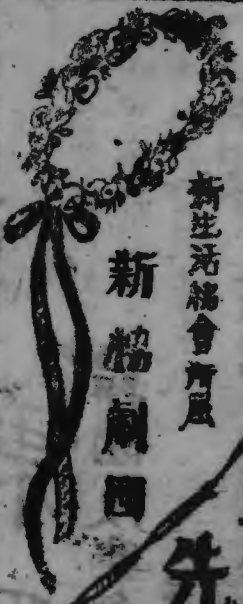 新生活協會所屬
新協劇團